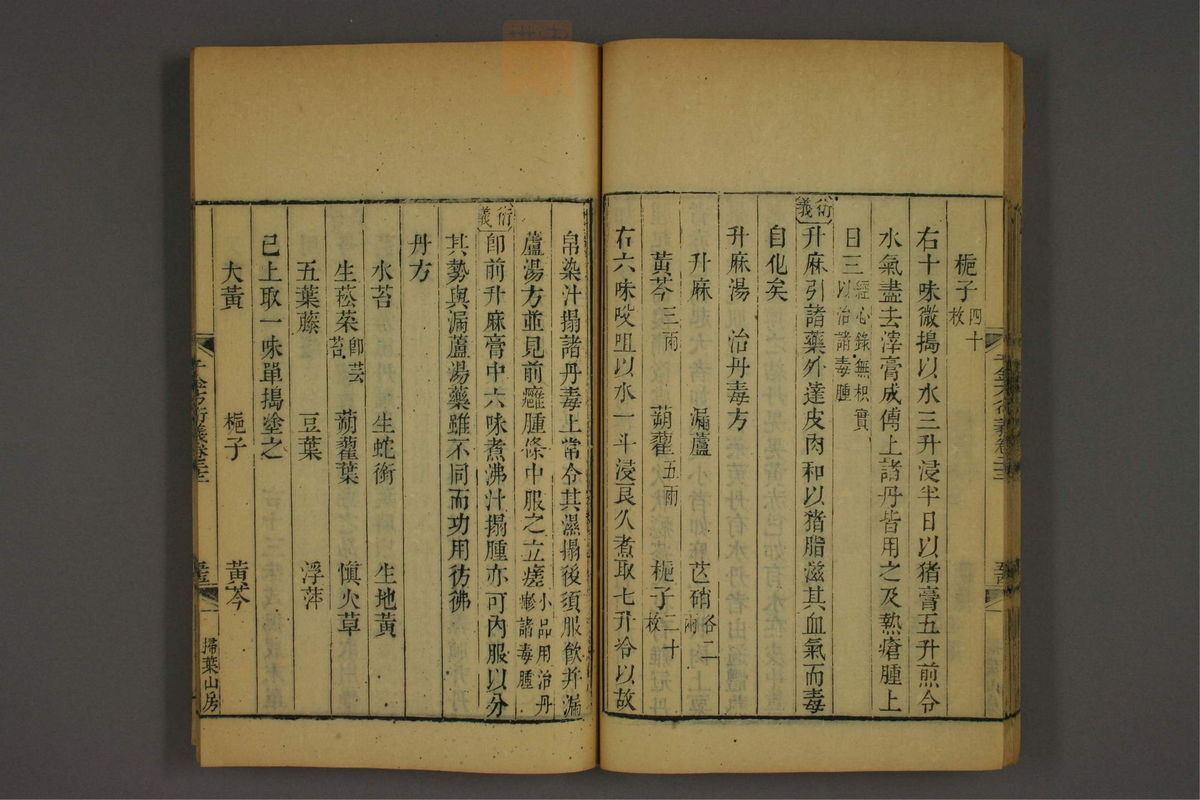 梔子四十枚
右十味微搗以水三升浸半日以猪膏五升煎令
水氣盡去滓膏成傅上諸丹皆用之及熱瘡腫上
日三經心錄無枳實以治諸毒腫
衍義升麻引諸藥外達皮肉和以猪脂滋其血氣而毒
自化矣
升麻湯 治丹毒方
升麻 漏蘆 芒硝各二兩
黃芩三兩 蒴藋五兩 梔子二十枚
右六味㕮咀以水一斗浸良久煮取七升冷以故
帛染汁搨諸丹毒上常令其濕搨後須服飲并漏
蘆湯方並見前癰腫條中服之立瘥小品用治丹㾦諸毒腫
衍義卽前升麻膏中六味煮沸汁搨腫亦可內服以分
其勢與漏蘆湯藥雖不同而功用彷彿
丹方
水苔 生蛇銜 生地黃
生菘菜卽芸苔 蒴藋葉 愼火草
五葉藤 豆葉 浮萍
已上取一味單搗塗之
大黃 梔子 黃芩
掃葉山房